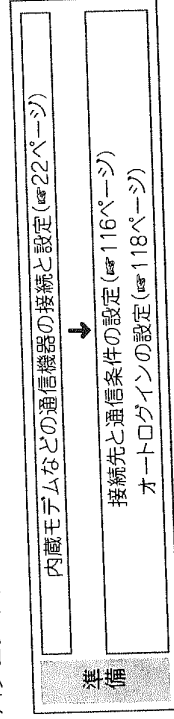 準備
内蔵モデムなどの通信機器の接続と設定(☞22ページ)
↓
接続先と通信条件の設定(☞116ページ)
オートログインの設定(☞118ページ)